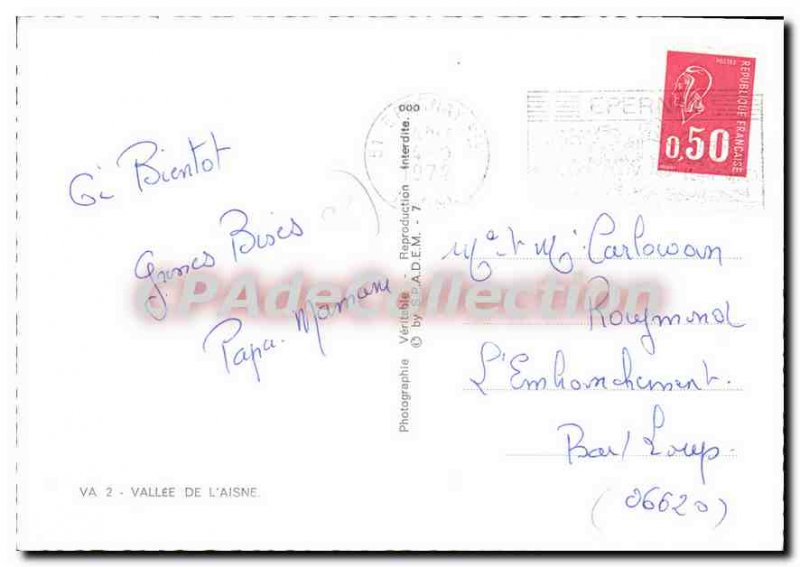 à Bientot
Grosses Bises
Papa. Maman
VA 2 - VALLÉE DE L'AISNE.
Photographie Véritable - Reproduction Interdite.
© by S.P.A.D.E.M. - 7
000
51 EPERNAY
1973
EPERNAY
POSTES
RÉPUBLIQUE FRANÇAISE
0,50
CPAdeCollection
Mme et M. Carlowan
Raymond
L'Embranchement.
Bar/Loup.
(06620)